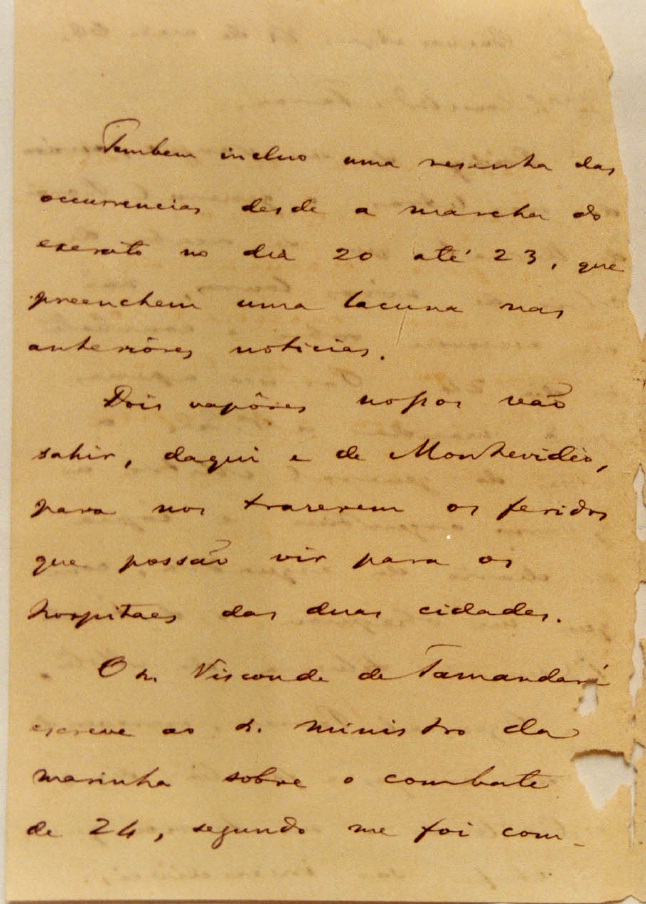 Tambem incluo uma resenha das
occurrencias desde a marcha do
exercito no dia 20 até 23, que
preenchem uma lacuna nas
anteriôres noticias.
Dois vapôres nossos vão
sahir, daqui e de Montevidéo,
para nos trazerem os feridos
que possão vir para os
hospitaes das duas cidades.
O Sr. Visconde de Tamandaré
escreve ao Sr. ministro da
marinha sobre o combate
de 24, segundo me foi com-